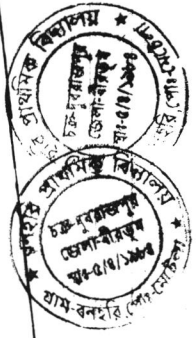 প্রাথমিক বিদ্যালয়
চক্র-দুবরাজপুর
জেলা-বীরভূম
বনহরি প্রাথমিক বিদ্যালয়
চক্র-দুবরাজপুর
জেলা-বীরভূম
স্থাঃ-৫/৪/১৯৮৪
গ্রাম-বনহরি পোঃ-মেটেলা